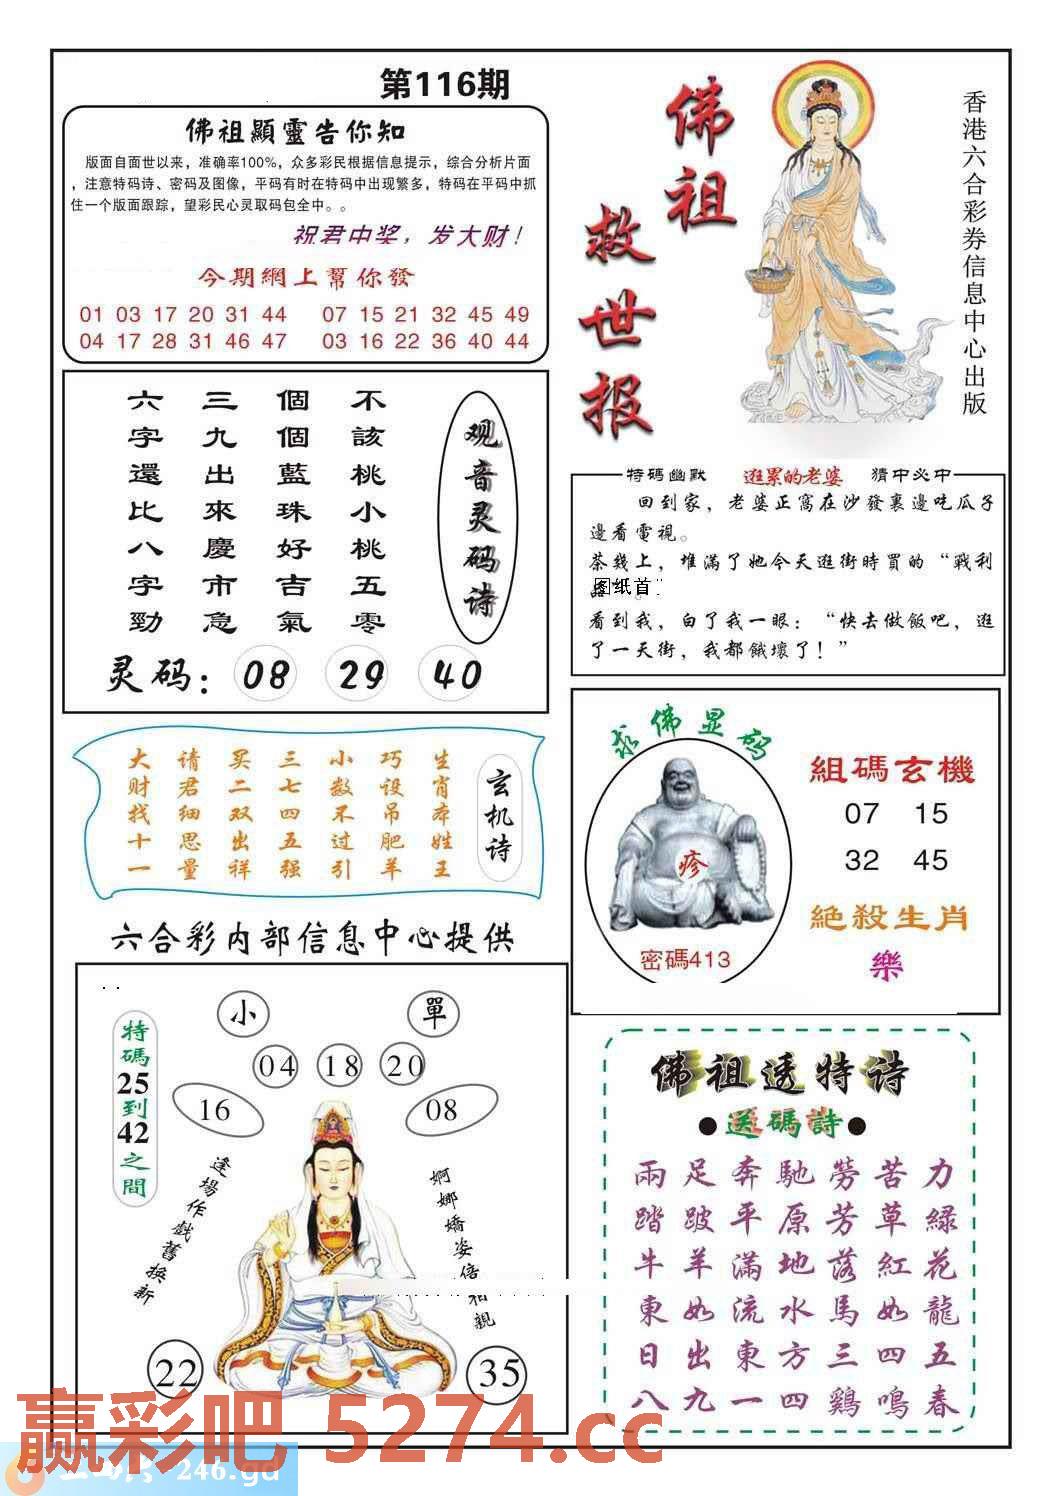 第116期
佛祖顯靈告你知
版面自面世以来，准确率100%，众多彩民根据信息提示，综合分析片面
，注意特码诗、密码及图像，平码有时在特码中出现繁多，特码在平码中抓
住一个版面跟踪，望彩民心灵取码包全中。。
祝君中奖，发大财！
今期網上幫你發
01 03 17 20 31 44 07 15 21 32 45 49
04 17 28 31 46 47 03 16 22 36 40 44
佛祖
救世报
香港六合彩券信息中心出版
六字還比八字勁
三九出來慶市急
個個藍珠好吉氣
不該桃小桃五零
观音灵码诗
灵码：08 29 40
特碼幽默 逛累的老婆 猜中必中
回到家，老婆正窩在沙發裏邊吃瓜子
邊看電視。
茶幾上，堆滿了她今天逛街時買的“戰利
图纸首
看到我，白了我一眼：“快去做飯吧，逛
了一天街，我都餓壞了！”
大财找十一
请君细思量
买二双出祥
三七四五强
小数不过引
巧设吊肥羊
生肖本姓王
玄机诗
求佛显码
疹
密碼413
組碼玄機
07 15
32 45
絕殺生肖
樂
六合彩内部信息中心提供
小 單
04 18 20
16 08
特碼25到42之間
逢場作戲舊换新
婀娜嬌姿倍相親
22 35
佛祖透特诗
●送碼詩●
兩足奔馳勞苦力
踏跛平原芳草緑
牛羊滿地落紅花
東如流水馬如龍
日出東方三四五
八九一四鷄鳴春
赢彩吧 5274.cc
246.gd